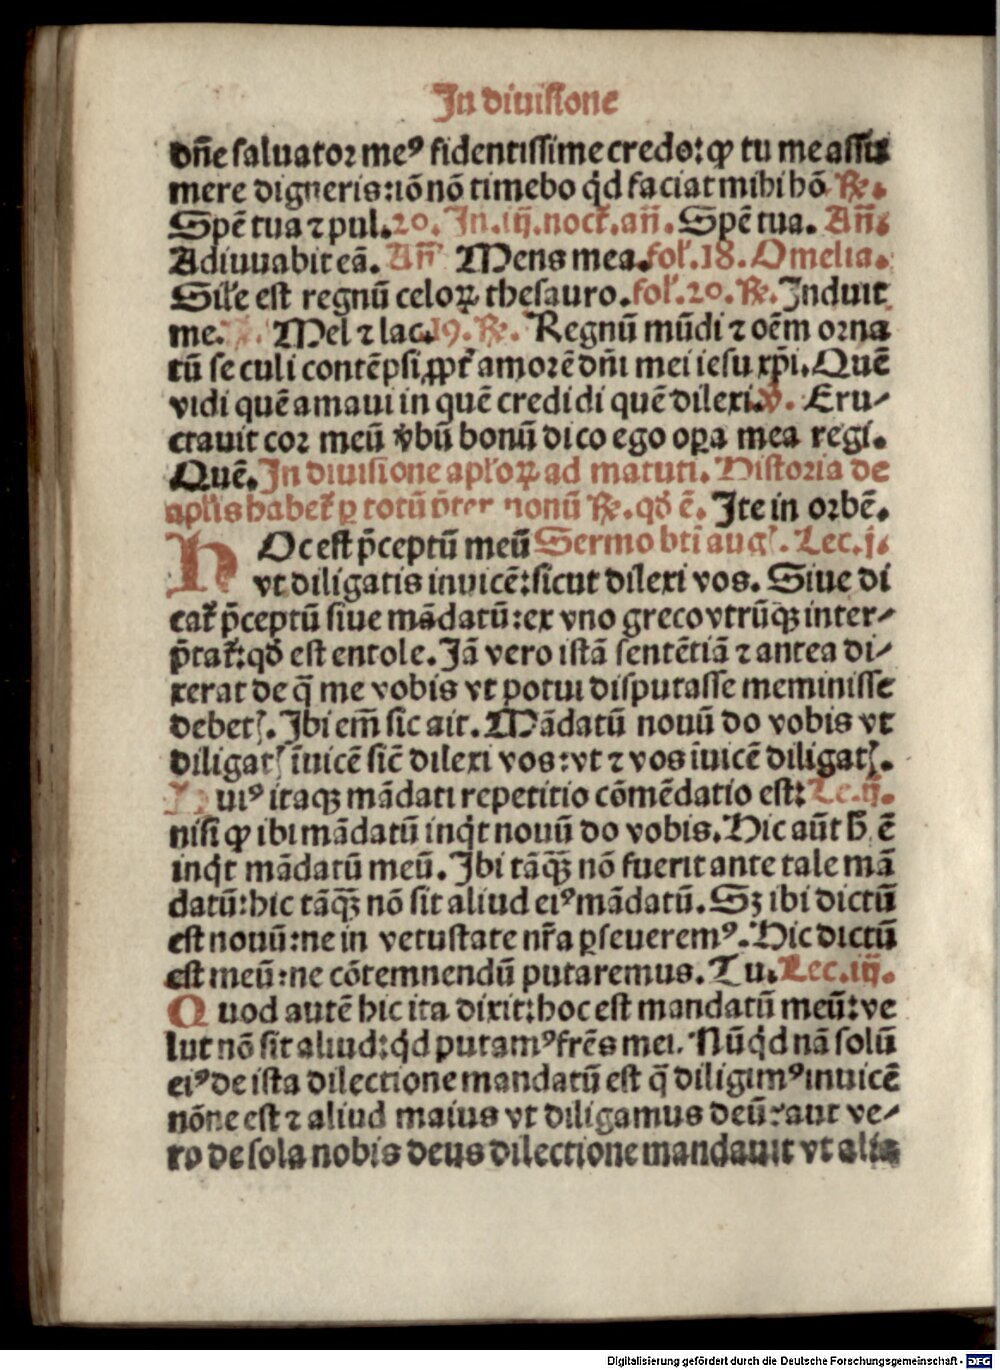 In diuisione
dn̄e saluator meꝰ fidentissime credo: ꝙ tu me assu
mere digneris: iō nō timebo qͥd faciat mihi hō ℟.
Spē tua ⁊ pul. 20. In. iij. noct. an̄. Spē tua. An̄.
Adiuuabit eā. An̄ Mens mea. fol. 18. Omelia.
Sil̄e est regnū celoꝝ thesauro. fol. 20. ℟. Induit
me. Mel ⁊ lac. 19. ℟. Regnū mūdi ⁊ oēm orna
tū seculi contēpsi ꝓpt̄ amorē dn̄i mei iesu xp̄i. Quē
vidi quē amaui in quē credidi quē dilexi. v̄. Eru-
ctauit cor meū v̄bū bonū dico ego oꝑa mea regi.
Quē. In diuisione apl̄oꝝ ad matuti. Historia de
apl̄is habet̄ ꝑ totū p̄ter nonū ℟. qd̄ ē. Ite in orbē.
HOc est p̄ceptū meū Sermo bt̄i aug. Lec. j.
vt diligatis inuicē: sicut dilexi vos. Siue di
cat̄ p̄ceptū siue mādatū: ex vno greco vtrūqꝫ inter-
p̄tat̄: qd̄ est entole. Iā vero istā sentētiā ⁊ antea di-
xerat de q̄ me vobis vt potui disputasse meminisse
debetꝭ. Ibi em̄ sic ait. Mādatū nouū do vobis vt
diligatꝭ īuicē sic̄ dilexi vos: vt ⁊ vos īuicē diligatꝭ.
Huiꝰ itaqꝫ mādati repetitio cōmēdatio est: Le. ij.
nisi ꝙ ibi mādatū inqͥt nouū do vobis. Hic aūt h̄ ē
inqͥt mādatū meū. Ibi tāqꝫ̄ nō fuerit ante tale mā
datū: hic tāqꝫ̄ nō sit aliud eiꝰ mādatū. Sꝫ ibi dictū
est nouū: ne in vetustate nr̄a ꝑseueremꝰ. Hic dictū
est meū: ne cōtemnendū putaremus. Tu. Lec. iij.
Quod autē hic ita dixit: hoc est mandatū meū: ve
lut nō sit aliud: qͥd putamꝰ frēs mei. Nūqͥd nā solū
eiꝰ de ista dilectione mandatū est q̄ diligimꝰ inuicē
nōne est ⁊ aliud maius vt diligamus deū: aut ve-
ro de sola nobis deus dilectione mandauit vt alia
Digitalisierung gefördert durch die Deutsche Forschungsgemeinschaft - DFG